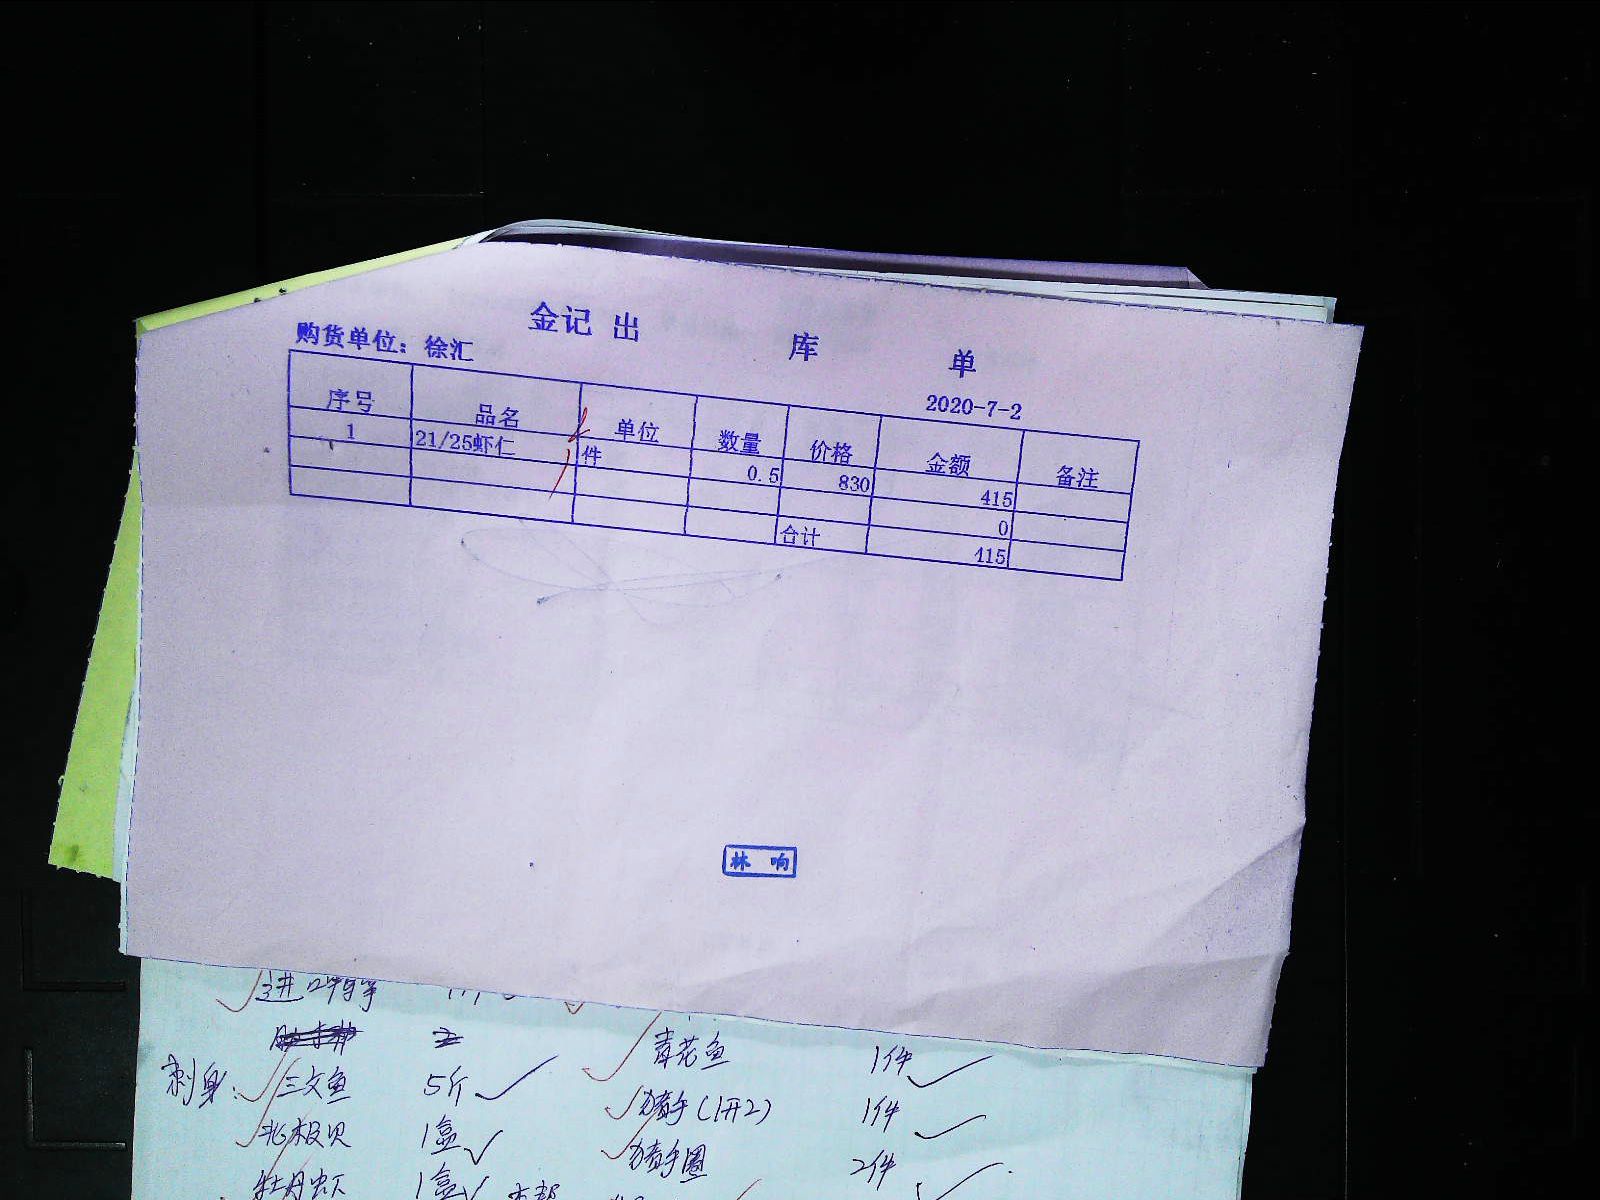 金记 出 库 单
购货单位：徐汇
2020-7-2
序号 品名 单位 数量 价格 金额 备注
1 21/25虾仁 件 0.5 830 415
0
合计 415
林 响
青花鱼 1件
刺身：三文鱼 5斤
猪手(1开2) 1件
北极贝 1盒
猪手圈 2件
牡丹虾 1盒